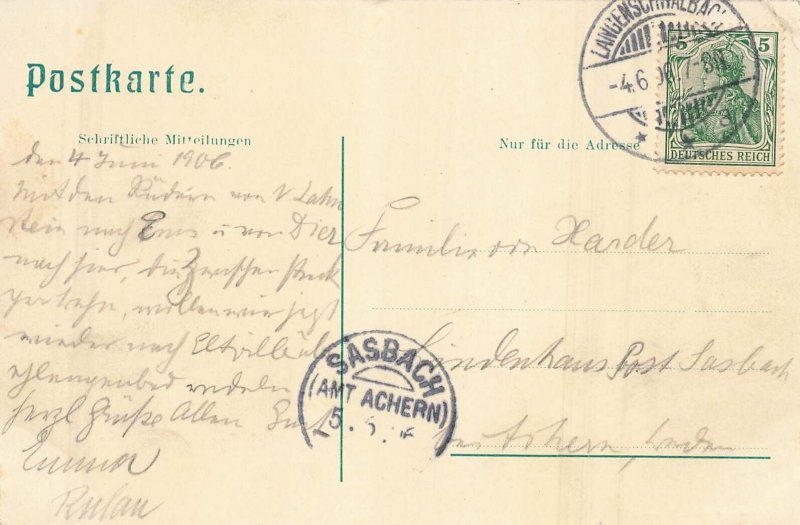 Postkarte.
Schriftliche Mitteilungen
Nur für die Adresse
LANGENSCHWALBACH
-4.6.06.7-8N
5 5
DEUTSCHES REICH
den 4 Juni 1906.
Mit den Rädern von N Lahn
stein nach Ems u von Diez
nach hier, die
wollen wir jetzt
wieder nach Eltville üb
Schlangenbad radeln
Herzl Grüße Allen
Emma
Familie von Harder
Lindenhaus Post Sasbach
bei Achern, Baden
SASBACH
(AMT ACHERN)
5.6.06